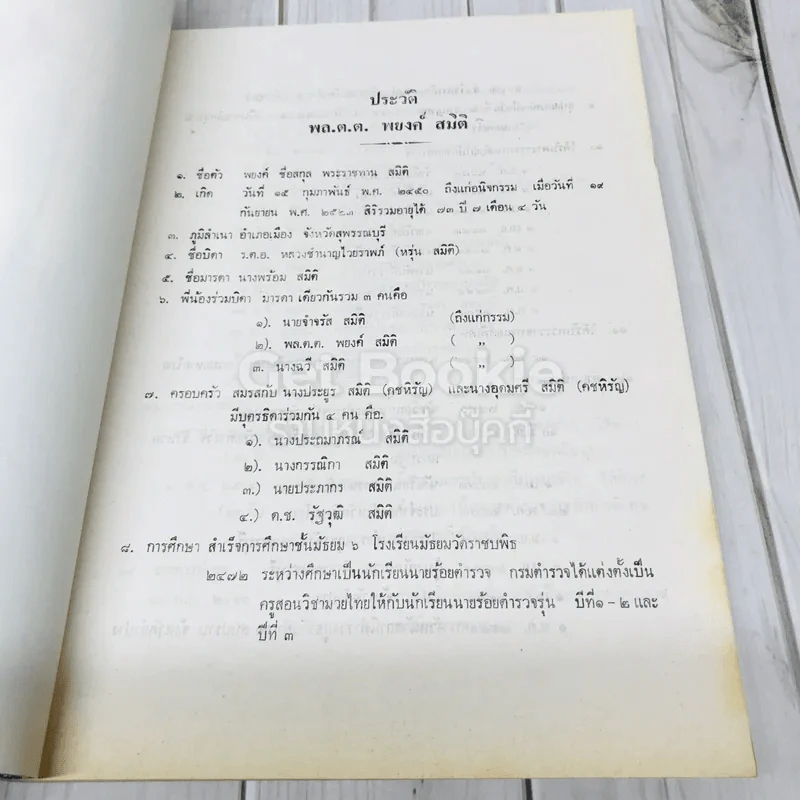 ประวัติ
พล.ต.ต. พยงค์ สมิติ
๑. ชื่อตัว พยงค์ ชื่อสกุล พระราชทาน สมิติ
๒. เกิด วันที่ ๑๕ กุมภาพันธ์ พ.ศ. ๒๔๕๐ ถึงแก่อนิจกรรม เมื่อวันที่ ๑๙
กันยายน พ.ศ. ๒๕๒๓ สิริรวมอายุได้ ๗๓ ปี ๗ เดือน ๔ วัน
๓. ภูมิลำเนา อำเภอเมือง จังหวัดสุพรรณบุรี
๔. ชื่อบิดา ร.ต.อ. หลวงชำนาญไวยราพภ์ (หรุ่น สมิติ)
๕. ชื่อมารดา นางพร้อม สมิติ
๖. พี่น้องร่วมบิดา มารดา เดียวกันรวม ๓ คนคือ
๑). นายจำจรัส สมิติ (ถึงแก่กรรม)
๒). พล.ต.ต. พยงค์ สมิติ ( ,, )
๓. นางฉวี สมิติ ( ,, )
Get Bookie
๗. ครอบครัว สมรสกับ นางประยูร สมิติ (คชหิรัญ) และนางอุดมศรี สมิติ (คชหิรัญ)
รวมหนังสือบุ๊คกี้
มีบุตรธิดาร่วมกัน ๔ คน คือ.
๑). นางประถมาภรณ์ สมิติ
๒). นางกรรณิกา สมิติ
๓.) นายประภากร สมิติ
๔.) ด.ช. รัฐวุฒิ สมิติ
๘. การศึกษา สำเร็จการศึกษาชั้นมัธยม ๖ โรงเรียนมัธยมวัดราชบพิธ
๒๔๗๒ ระหว่างศึกษาเป็นนักเรียนนายร้อยตำรวจ กรมตำรวจได้แต่งตั้งเป็น
ครูสอนวิชามวยไทยให้กับนักเรียนนายร้อยตำรวจรุ่น ปีที่๑-๒ และ
ปีที่ ๓